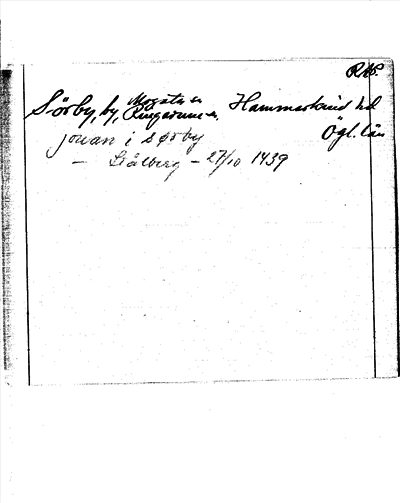 RAP.
Mogata sn
Sörby, by, Ringarums sn, Hammarkind hd
Ögl. län
jouan i sørby
— Stålberg — 27/10 1439